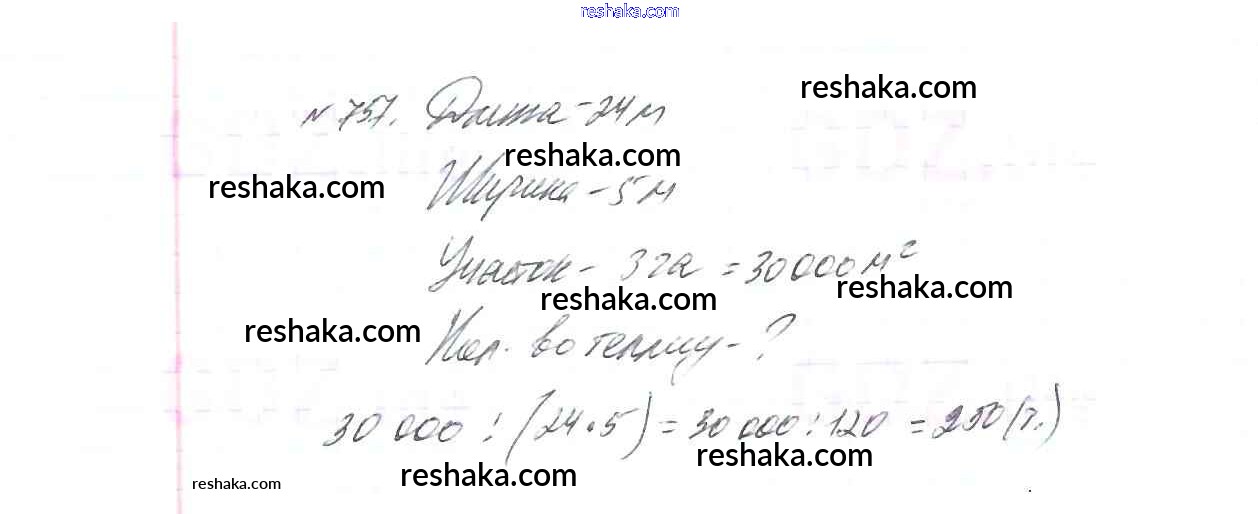 reshaka.com
reshaka.com
№ 757. Длина - 24 м
reshaka.com
reshaka.com
Ширина - 5 м
Участок - 3 га = 30 000 м²
reshaka.com
reshaka.com
reshaka.com
Кол. во теплиц - ?
30 000 : (24 • 5) = 30 000 : 120 = 250 (т.)
reshaka.com
reshaka.com
reshaka.com